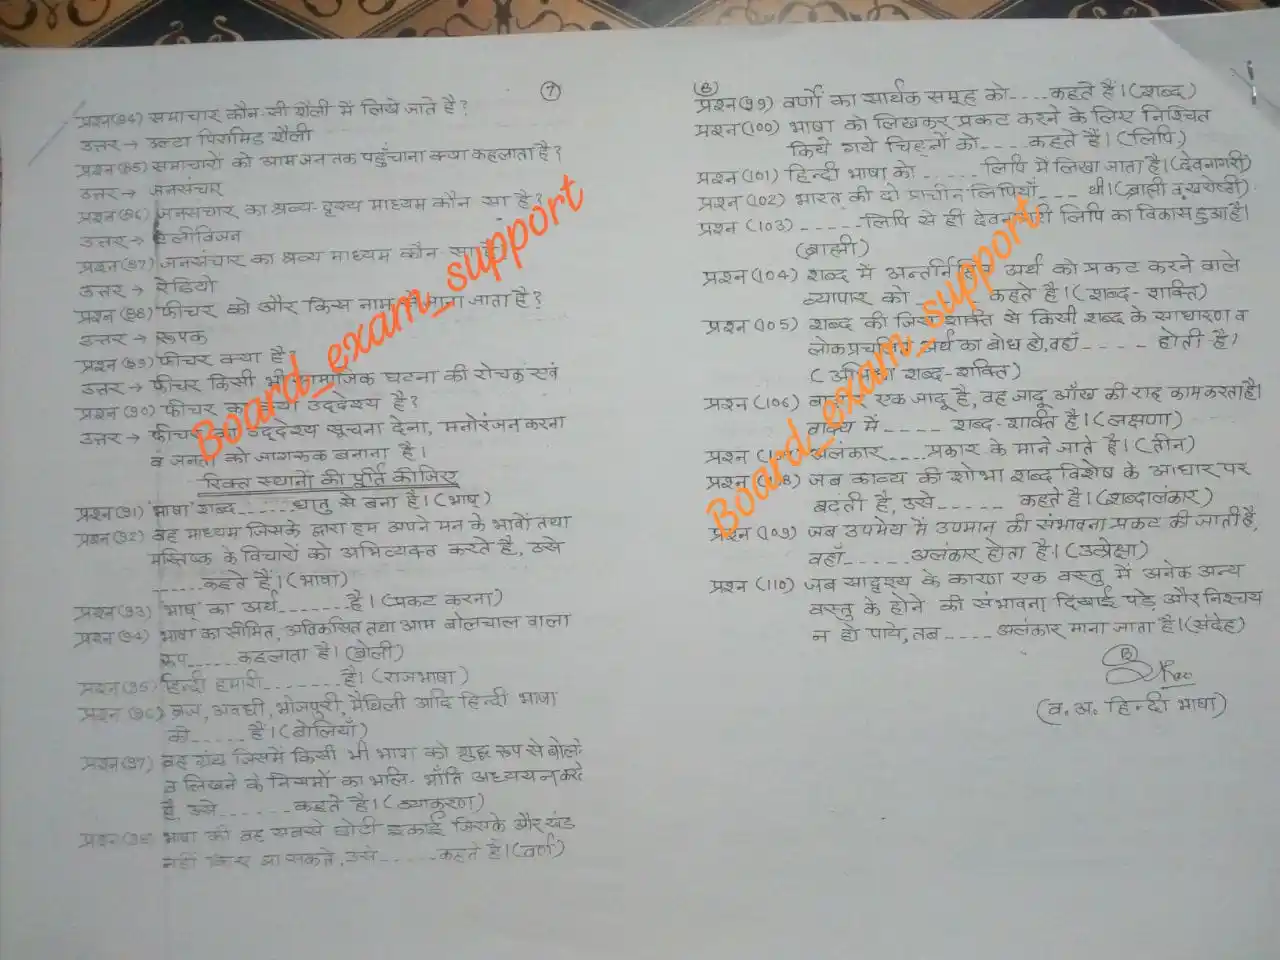 7
प्रश्न(84) समाचार कौन-सी शैली में लिखे जाते है?
उत्तर → उल्टा पिरामिड शैली
प्रश्न(85) समाचारों को आमजन तक पहुँचाना क्या कहलाता है?
उत्तर → जनसंचार
प्रश्न(86) जनसंचार का श्रव्य-दृश्य माध्यम कौन सा है?
उत्तर → टेलीविजन
प्रश्न(87) जनसंचार का श्रव्य माध्यम कौन-सा है
उत्तर → रेडियो
प्रश्न(88) फीचर को और किस नाम से माना जाता है?
उत्तर → रूपक
प्रश्न(89) फीचर क्या है?
उत्तर → फीचर किसी भी सामाजिक घटना की रोचक एवं
प्रश्न(90) फीचर का क्या उद्देश्य है?
उत्तर → फीचर का उद्देश्य सूचना देना, मनोरंजन करना
व जनता को जागरूक बनाना है।
रिक्त स्थानों की पूर्ति कीजिए
प्रश्न(91) 'भाषा' शब्द ...... धातु से बना है। (भाष्)
प्रश्न(92) वह माध्यम जिसके द्वारा हम अपने मन के भावों तथा
मस्तिष्क के विचारों को अभिव्यक्त करते है, उसे
...... कहते हैं। (भाषा)
प्रश्न(93) 'भाष्' का अर्थ ...... है। (प्रकट करना)
प्रश्न(94) भाषा का सीमित, अविकसित तथा आम बोलचाल वाला
रूप ...... कहलाता है। (बोली)
प्रश्न(95) हिन्दी हमारी ....... है। (राजभाषा)
प्रश्न(96) ब्रज, अवधी, भोजपुरी, मैथिली आदि हिन्दी भाषा
की ..... हैं। (बोलियाँ)
प्रश्न(97) वह ग्रंथ जिसमें किसी भी भाषा को शुद्ध रूप से बोलने
व लिखने के नियमों का भलि-भाँति अध्ययन करते
है, उसे ...... कहते है। (व्याकरण)
प्रश्न(98) भाषा की वह सबसे छोटी इकाई जिसके और खंड
नहीं किए जा सकते, उसे ..... कहते है। (वर्ण)
8
प्रश्न(99) वर्णों का सार्थक समूह को .... कहते हैं। (शब्द)
प्रश्न(100) भाषा को लिखकर प्रकट करने के लिए निश्चित
किये गये चिह्नों को .... कहते हैं। (लिपि)
प्रश्न(101) हिन्दी भाषा को ..... लिपि में लिखा जाता है। (देवनागरी)
प्रश्न(102) भारत की दो प्राचीन लिपियाँ .... थी। (ब्राह्मी व खरोष्ठी)
प्रश्न(103) ...... लिपि से ही देवनागरी लिपि का विकास हुआ है।
(ब्राह्मी)
प्रश्न(104) शब्द में अन्तर्निहित अर्थ को प्रकट करने वाले
व्यापार को ..... कहते है। (शब्द-शक्ति)
प्रश्न(105) शब्द की जिस शक्ति से किसी शब्द के साधारण व
लोकप्रचलित अर्थ का बोध हो, वहाँ .... होती है।
(अभिधा शब्द-शक्ति)
प्रश्न(106) बाजार एक जादू है, वह जादू आँख की राह काम करता है।
वाक्य में .... शब्द-शक्ति है। (लक्षणा)
प्रश्न(107) अलंकार .... प्रकार के माने जाते है। (तीन)
प्रश्न(108) जब काव्य की शोभा शब्द विशेष के आधार पर
बढती है, उसे ..... कहते है। (शब्दालंकार)
प्रश्न(109) जब उपमेय में उपमान की संभावना प्रकट की जाती है,
वहाँ ..... अलंकार होता है। (उत्प्रेक्षा)
प्रश्न(110) जब सादृश्य के कारण एक वस्तु में अनेक अन्य
वस्तु के होने की संभावना दिखाई पड़े और निश्चय
न हो पाये, तब .... अलंकार माना जाता है। (संदेह)
(व. अ. हिन्दी भाषा)
Board_exam_support
Board_exam_support